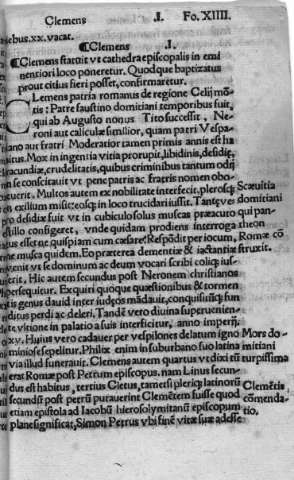 Clemens I. Fo. XIIII.
diebus.xx. vacat.
¶Clemens I.
¶Clemens statuit vt cathedra episcopalis in emi
nentiori loco poneretur. Quodque baptizatus
prout citius fieri posset, confirmaretur.
Clemens patria romanus de regione Celij mõ
tis: Patre faustino domitiani temporibus fuit,
qui ab Augusto nonus Tito successit, Ne,
roni aut caliculæ similior, quam patri Vespa,
siano aut fratri Moderatior tamen primis annis est ha
bitus. Mox in ingentia vitia prorupit, libidinis, desidię,
iracundiæ, crudelitatis, quibus criminibus tantum odij
in se conscitauit vt pene patris ac fratris nomen obo,
scuerit. Multos autem ex nobilitate interfecit, plerosq;
in exilium misit: eosq; in loco trucidari iussit. Tantęque
pro desidię fuit vt in cubiculo solus muscas præacuto
stillo configeret, vnde quidam prodiens interroga
tus esset eq; quispiam cum cæsare? Respõdit per iocum,
ne musca quidem. Eo præterea dementiæ & iactantiæ
venit vt se dominum ac deum vocari scribi coliq; ius,
serit. Hic autem secundus post Neronem christianos
persequitur. Exquiri quoque quæstionibus & tormen
tis genus dauid inter iudęos mãdauit, conquisitũq; fun
ditus perdi ac deleri. Tandẽ vero diuina superuenien,
te vltione in palatio a suis interficitur, anno imperij.
xv. Huius vero cadauer per vespilones delatum igno
miniose sepelitur. Philix enim in suburbano suo latina
via illud funerauit. Clemens autem quartus vt dixi
erat Romæ post Petrum episcopus. nam Linus secun,
dus est habitus, tertius Cletus, tametsi pleriq; latinorũ
secundũ post petrũ putauerint Clemẽtem fuisse quod
etiam epistola ad Iacobũ hierosolymitanũ episcopum
plane significat, Simon Petrus vbi finẽ vitæ suæ adesse
Scæuitia
domitiani
qui pan,
theon
Romæ cõ
struxit.
Mors do,
mitiani
turpissima
Clemẽtis
cõmenda,
tio.